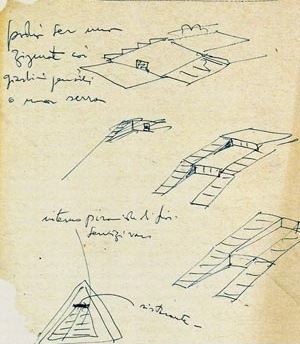 potrò ser una
zigurat coi
giardini pensili
o una serra
interno piramide di
ristorante